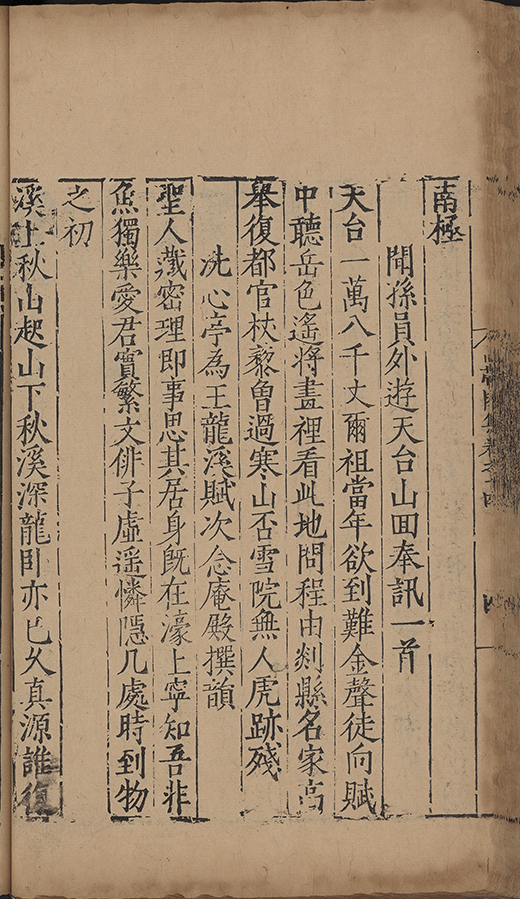 南極
聞孫員外遊天台山囬奉訊一首
天台一萬八千丈爾祖當年欲到難金聲徒向賦
中聽岳色遙將畫裡看此地問程由剡縣名家高
舉復都官杖藜曽過寒山否雪院無人虎跡殘
洗心亭為王龍溪賦次念庵殿撰韻
聖人濈密理即事思其居身旣在濠上寧知吾非
魚獨樂愛君實繁文俳子虛遥憐隱几處時到物
之初
溪上秋山起山下秋溪深龍卧亦已久真源誰復